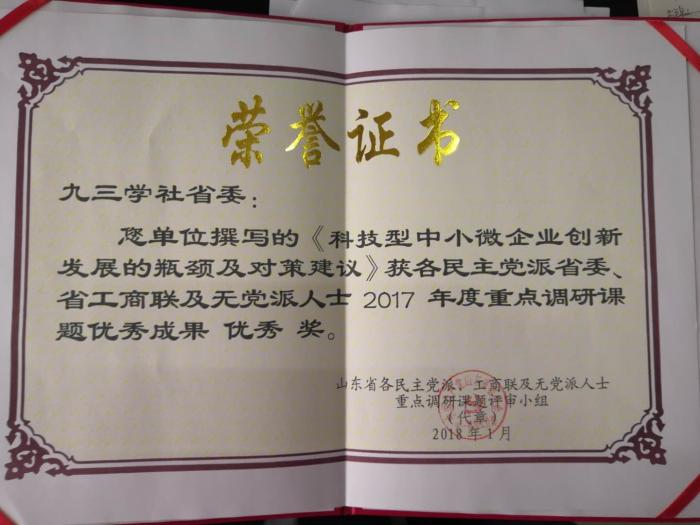 荣誉证书
九三学社省委：
您单位撰写的《科技型中小微企业创新
发展的瓶颈及对策建议》获各民主党派省委、
省工商联及无党派人士 2017 年度重点调研课
题优秀成果 优秀 奖。
山东省各民主党派、工商联及无党派人士
重点调研课题评审小组
（代章）
2018 年 1 月